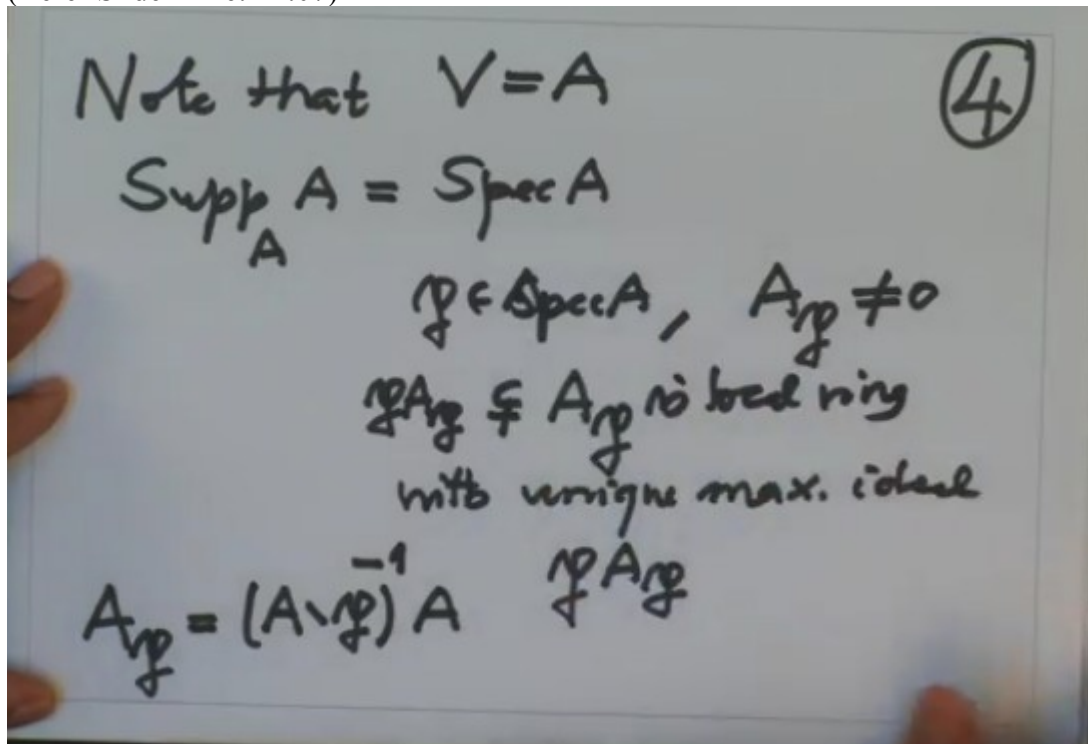 Note that V = A
④
Supp_A A = Spec A
𝔭 ∈ Spec A, A_𝔭 ≠ 0
𝔭A_𝔭 ⊊ A_𝔭 is local ring
with unique max. ideal
𝔭A_𝔭
A_𝔭 = (A∖𝔭)⁻¹ A